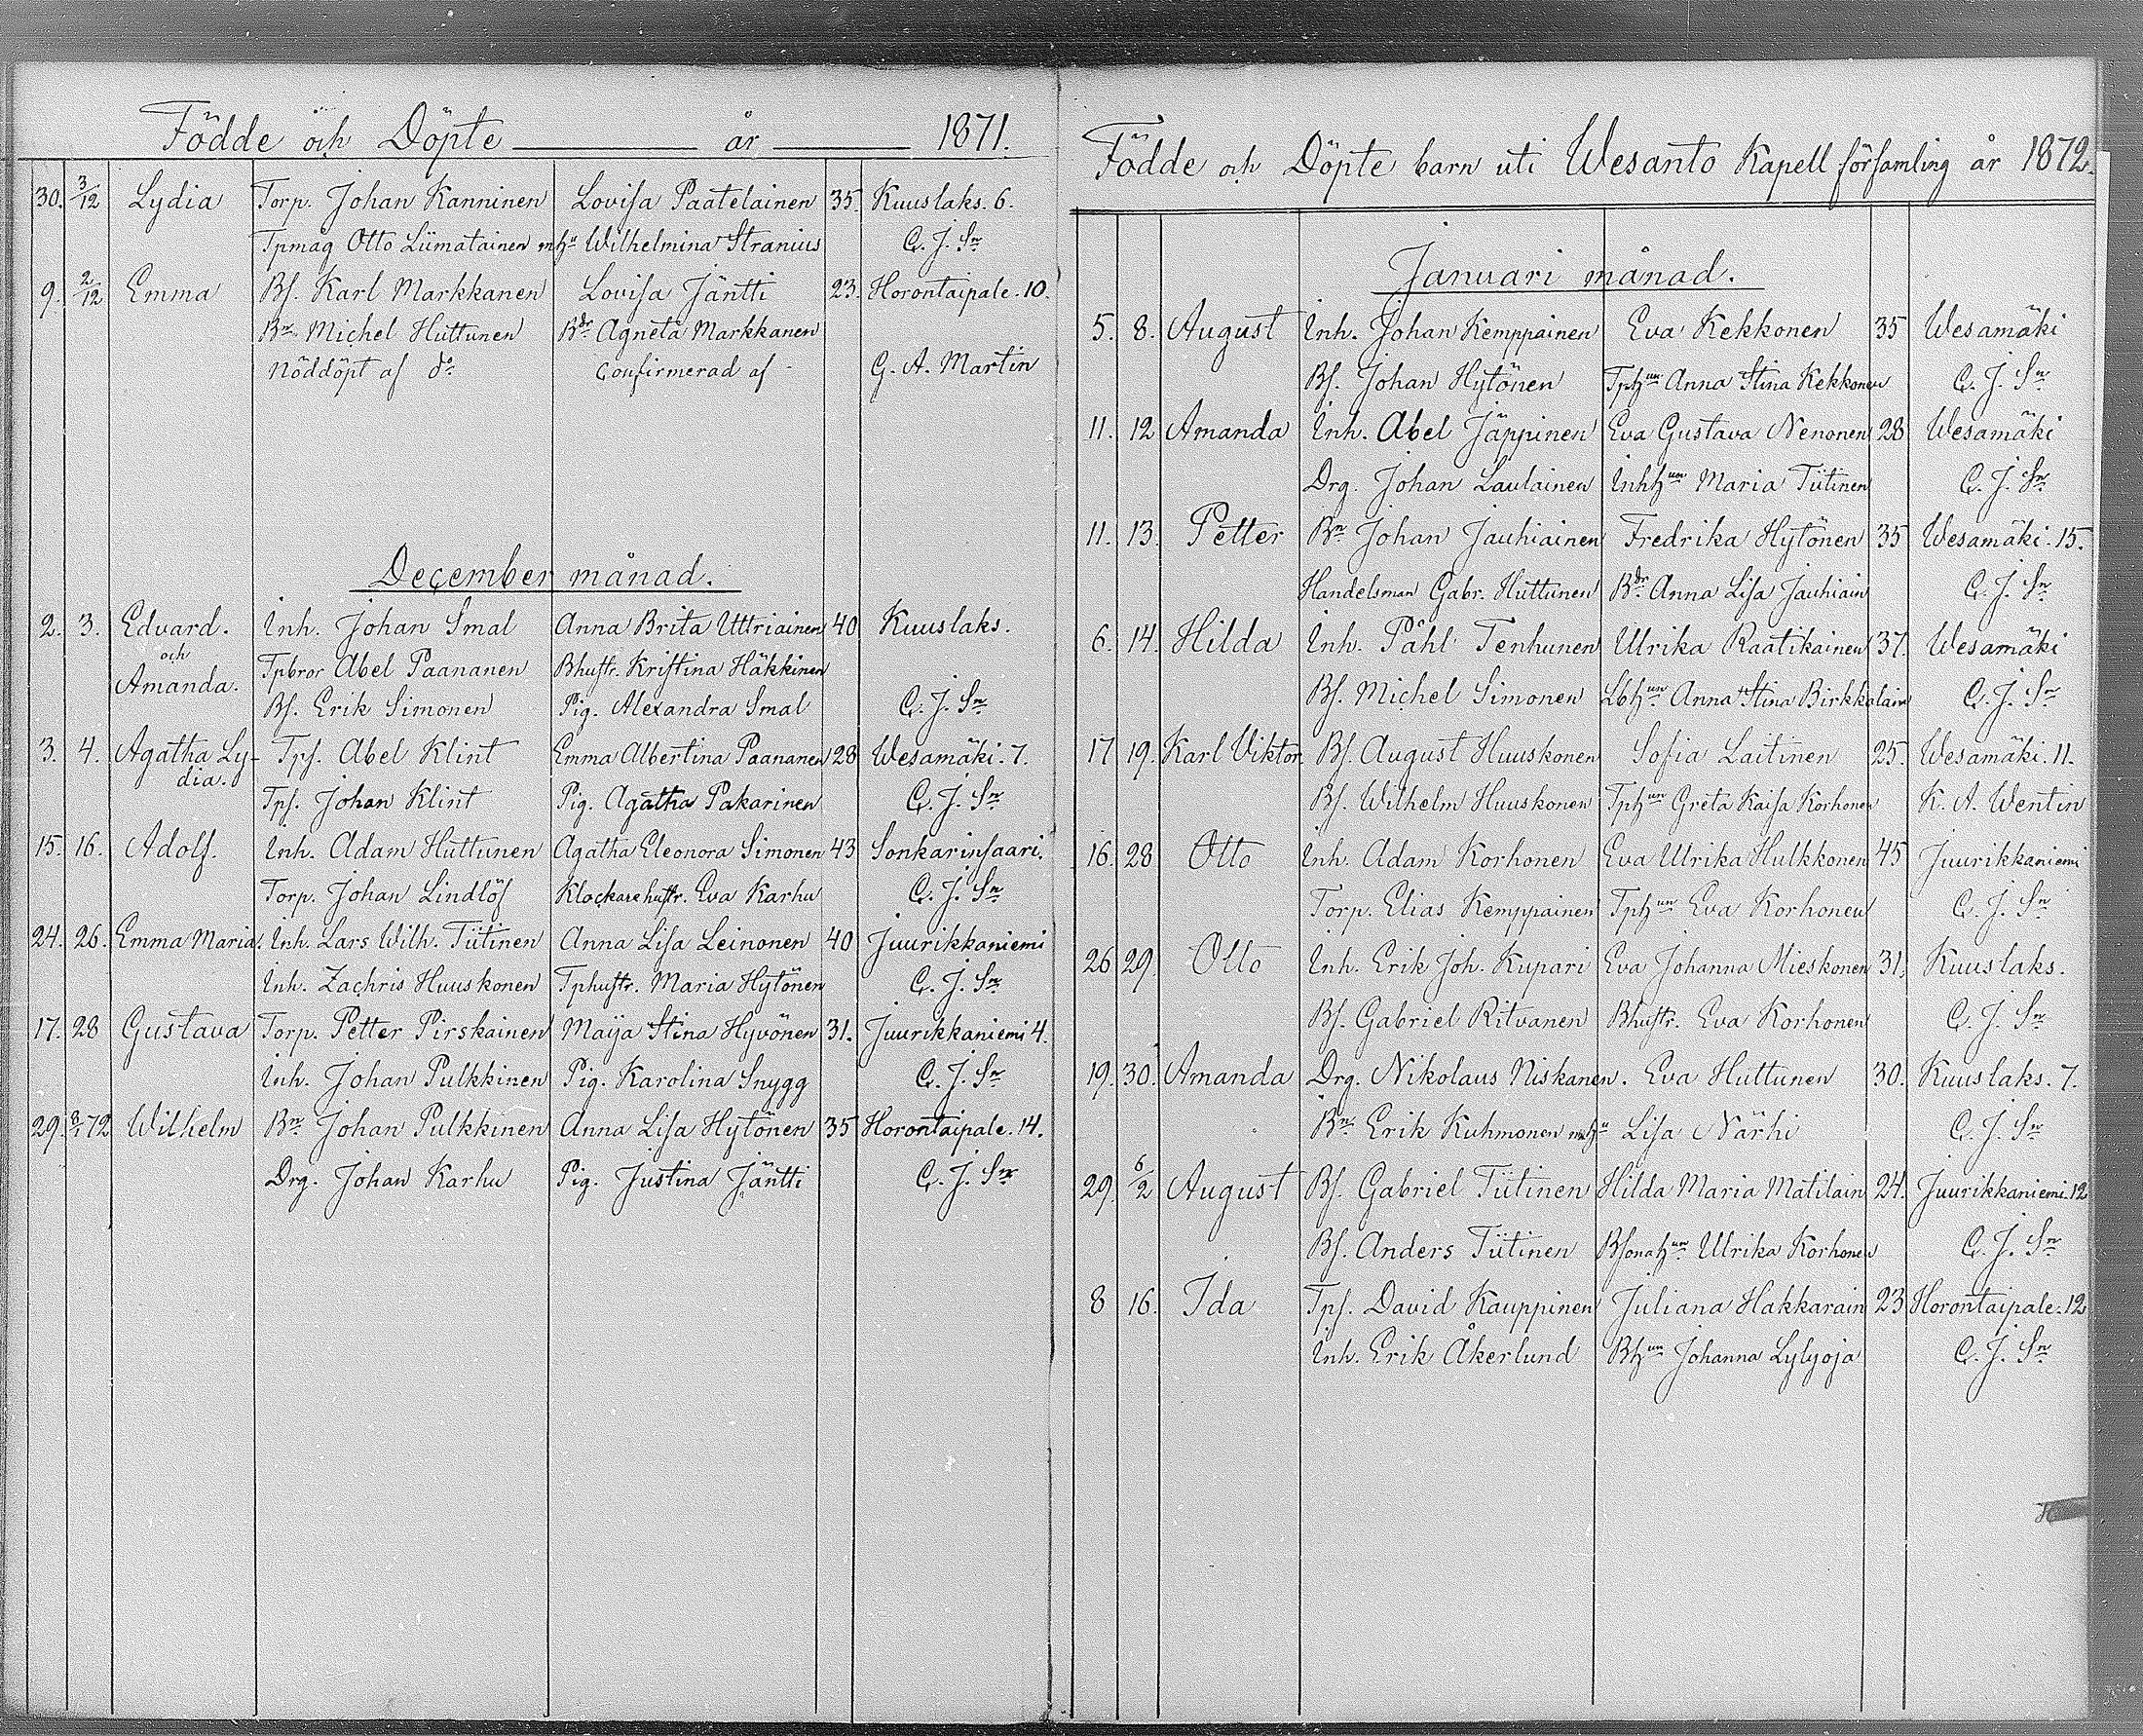 Födde och Döpte år 1871.
30. 3/12 Lydia Torp. Johan Kanninen Lovisa Paatelainen 35. Kuuslaks. 6.
Tpmåg Otto Liimatainen m hu Wilhelmina Stranius C. J. Sn
9. 2/12 Emma Bs. Karl Markkanen Lovisa Jäntti 23. Horontaipale. 10.
Bn Michel Huttunen Bdr Agneta Markkanen
nöddöpt af do Confirmerad af G. A. Martin
December månad.
2. 3. Edvard. Inh. Johan Smal Anna Brita Uttriainen 40 Kuuslaks.
och Tpbror Abel Paananen Bhustr. Kristina Häkkinen
Amanda. Bs. Erik Simonen Pig. Alexandra Smal C. J. Sn
3. 4. Agatha Ly- Tps. Abel Klint Emma Albertina Paananen 28 Wesamäki. 7.
dia. Tps. Johan Klint Pig. Agatha Pakarinen C. J. Sn
15. 16. Adolf. Inh. Adam Huttunen Agatha Eleonora Simonen 43 Sonkarinsaari.
Torp. Johan Lindlöf Klockarehustr. Eva Karhu C. J. Sn
24. 26. Emma Maria. Inh. Lars Wilh. Tiitinen Anna Lisa Leinonen 40 Juurikkaniemi
Inh. Zachris Huuskonen Tphustr. Maria Hytönen C. J. Sn
17. 28 Gustava Torp. Petter Pirskainen Maija Stina Hyvönen 31. Juurikkaniemi 4.
Inh. Johan Pulkkinen Pig. Karolina Snygg C. J. Sn
29. 8/1 72 Wilhelm Bn Johan Pulkkinen Anna Lisa Hytönen 35 Horontaipale. 14.
Drg. Johan Karhu Pig. Justina Jäntti C. J. Sn
Födde och Döpte barn uti Wesanto Kapell församling år 1872.
Januari månad.
5. 8. August Inh. Johan Kemppainen Eva Kekkonen 35 Wesamäki
Bs. Johan Hytönen Tphun Anna Stina Kekkonen C. J. Sn
11. 12 Amanda Inh. Abel Jäppinen Eva Gustava Nenonen 28 Wesamäki
Drg. Johan Laulainen Inhhun Maria Tiitinen C. J. Sn
11. 13. Petter Bn Johan Jauhiainen Fredrika Hytönen 35 Wesamäki. 15.
Handelsman Gabr. Huttunen Bdr Anna Lisa Jauhiain C. J. Sn
6. 14. Hilda Inh. Påhl Tenhunen Ulrika Raatikainen 37. Wesamäki
Bs. Michel Simonen Lbhun Anna Stina Birkkalain C. J. Sn
17 19. Karl Viktor. Bs. August Huuskonen Sofia Laitinen 25. Wesamäki. 11.
Bs. Wilhelm Huuskonen Tphun Greta Kaisa Korhonen K. A. Wentin
16. 28 Otto Inh. Adam Korhonen Eva Ulrika Hulkkonen 45 Juurikkaniemi
Torp. Elias Kemppainen Tphun Eva Korhonen C. J. Sn
26 29 Otto Inh. Erik Joh. Kupari Eva Johanna Mieskonen 31. Kuuslaks.
Bs. Gabriel Ritvanen Bhustr. Eva Korhonen C. J. Sn
19. 30. Amanda Drg. Nikolaus Niskanen. Eva Huttunen 30. Kuuslaks. 7.
Bn Erik Kuhmonen m hu Lisa Närhi C. J. Sn
29. 6/2 August Bs. Gabriel Tiitinen Hilda Maria Matilain 24. Juurikkaniemi. 12
Bs. Anders Tiitinen Bsonahun Ulrika Korhonen C. J. Sn
8 16. Ida Tps. David Kauppinen Juliana Hakkarain 23 Horontaipale. 12
Inh. Erik Åkerlund Bhun Johanna Lylyoja C. J. Sn